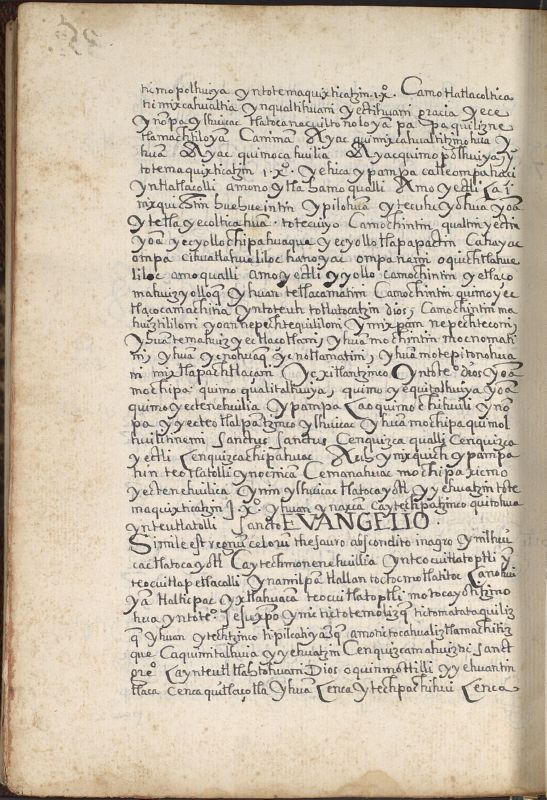 timopolhuiya yntotemaquixticatzin .i.x̊. Camo tlatlacoltica
timixcahualtia ynqualtihuani yectihuani gracia yece
ynonpa ylhuicac tlatocanecuiltonoloyan papaquilizne
tlamachtiloyan Caniman Ayac quimixcahualtitzinohua y
huan Ayac quimocahuilia Ayac quimopolhuiya yn
totemaquixticatzin i.x̊. yehica ypampa
yntlatlacolli amono ytla hamo qualli Amo yectli Ca i
mixquichtin huehueintin ypilohuan ytecuhyohuan yoan
ytetlayecolticahuan totecuiyo Camochintin qualtin yectin
yoan yecyollochipahuaque yecyollotlapapactin Cahayac
ompa cihuatlahueliloc hanoyac ompa nemi oquichtlahue
liloc amo qualli amo yectli yyollo camochintin yetlaço
mahuizyolloque yhuan tetlacamatini Camochintin quimoyec
tlaçocamachitia yntoteuh totlatocatzin dios, Camochintin ma
huiztililoni yoan nepechtequililoni ymixpan nepechteconi,
yhuan temahuizyectlaçotlani, yhuan mochintin mocnomati
ni, yhuan ycnohuaque ycnotlamatini, yhuan motepitonohua
ni mixtlapachtlaçani Ycxitlantzinco Yntote° dios yoan
mochipa quimoqualitalhuiya, quimoyequitalhuiya yoan
quimoyectenehuilia ypampa Caoquimochihuili yno
pa yyecteotlalpatzinco ylhuicac yhuan mochipa quimol
huilitinemi Sanctus Sanctus Cenquizca qualli Cenquizca
yectli Cenquizcachipahuac Auh ynixquich ypampa
hin teotlatolli ynoc nican Cemanahuac mochipa xicmo
yectenehuilica ynin ylhuicac tlatocayotl yyehuatzin tote
maquixticatzin J.x̊. yhuan ynaxcan caytechpatzinco quitohua
ynteutlatolli Sancto EVANGELIO.
Simile est regnum celorum thesauro abscondito in agro ynilhui
cactlatocayotl Caytechmonenehuillia ynteocuitlatoptli yn
teocuitlapetlacalli ynamilpan tlallan toctoc motlatitoc Canohui
yan tlalticpac yxtlahuacan teocuitlatoptli motocayotitzino
hua yntote° Jesuxpo ynictictotemolizque tictomatataquiliz
que yhuan ytechtzinco tipilcahiyazque amotictocahualiztlamachitiz
que Caquimitalhuia yyehuatzin Cenquizcamahuizti Sanct
greo Cayn teutl tlahtohuani Dios oquinmottilli yyehuantin
tlaca Cenca quitlaçotla yhuan Cenca ytech pachihui Cenca